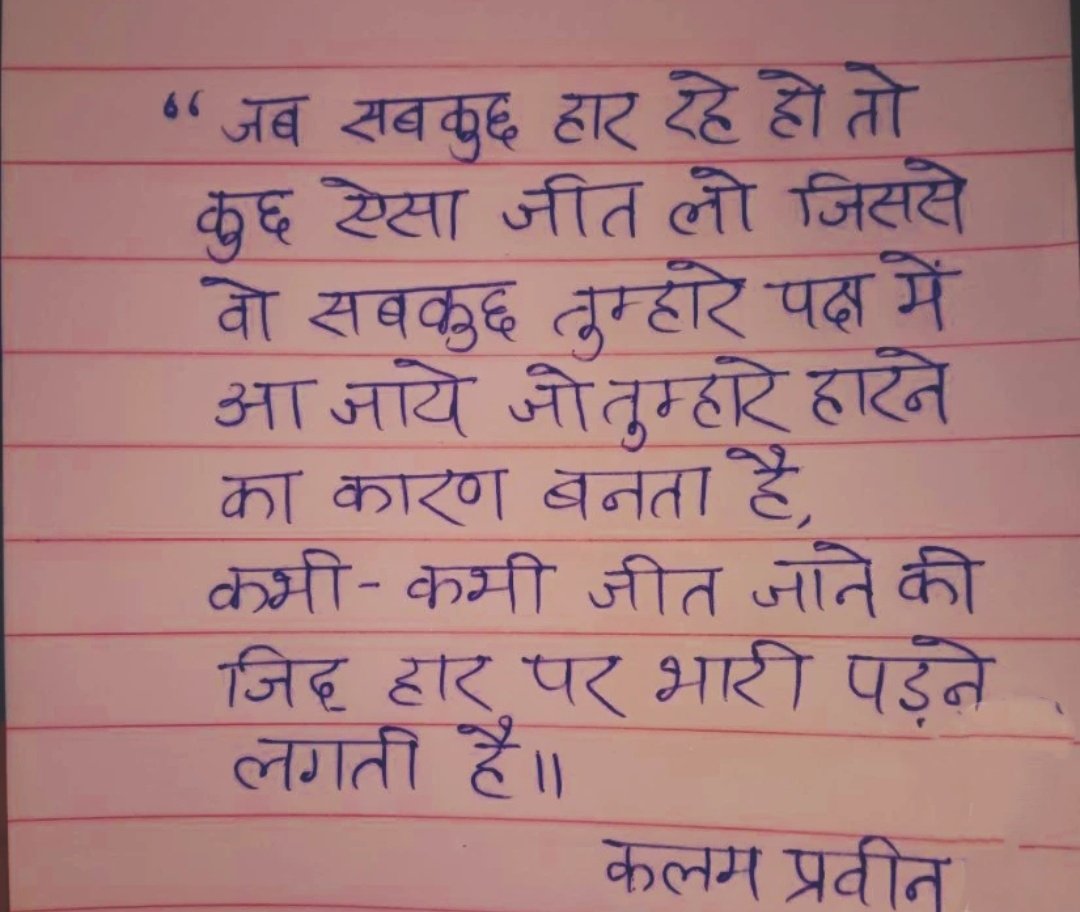 “ जब सबकुछ हार रहे हो तो
कुछ ऐसा जीत लो जिससे
वो सबकुछ तुम्हारे पक्ष में
आ जाये जो तुम्हारे हारने
का कारण बनता है,
कभी - कभी जीत जाने की
जिद हार पर भारी पड़ने
लगती है॥
कलम प्रवीन